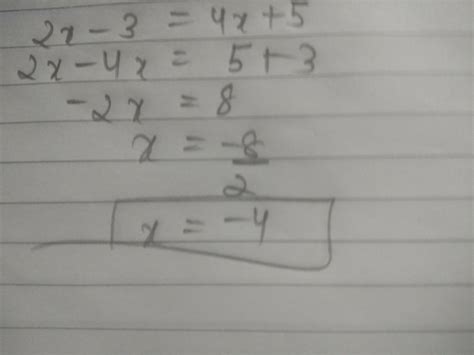 2x - 3 = 4x + 5
2x - 4x = 5 + 3
- 2x = 8
x = -8/2
x = -4